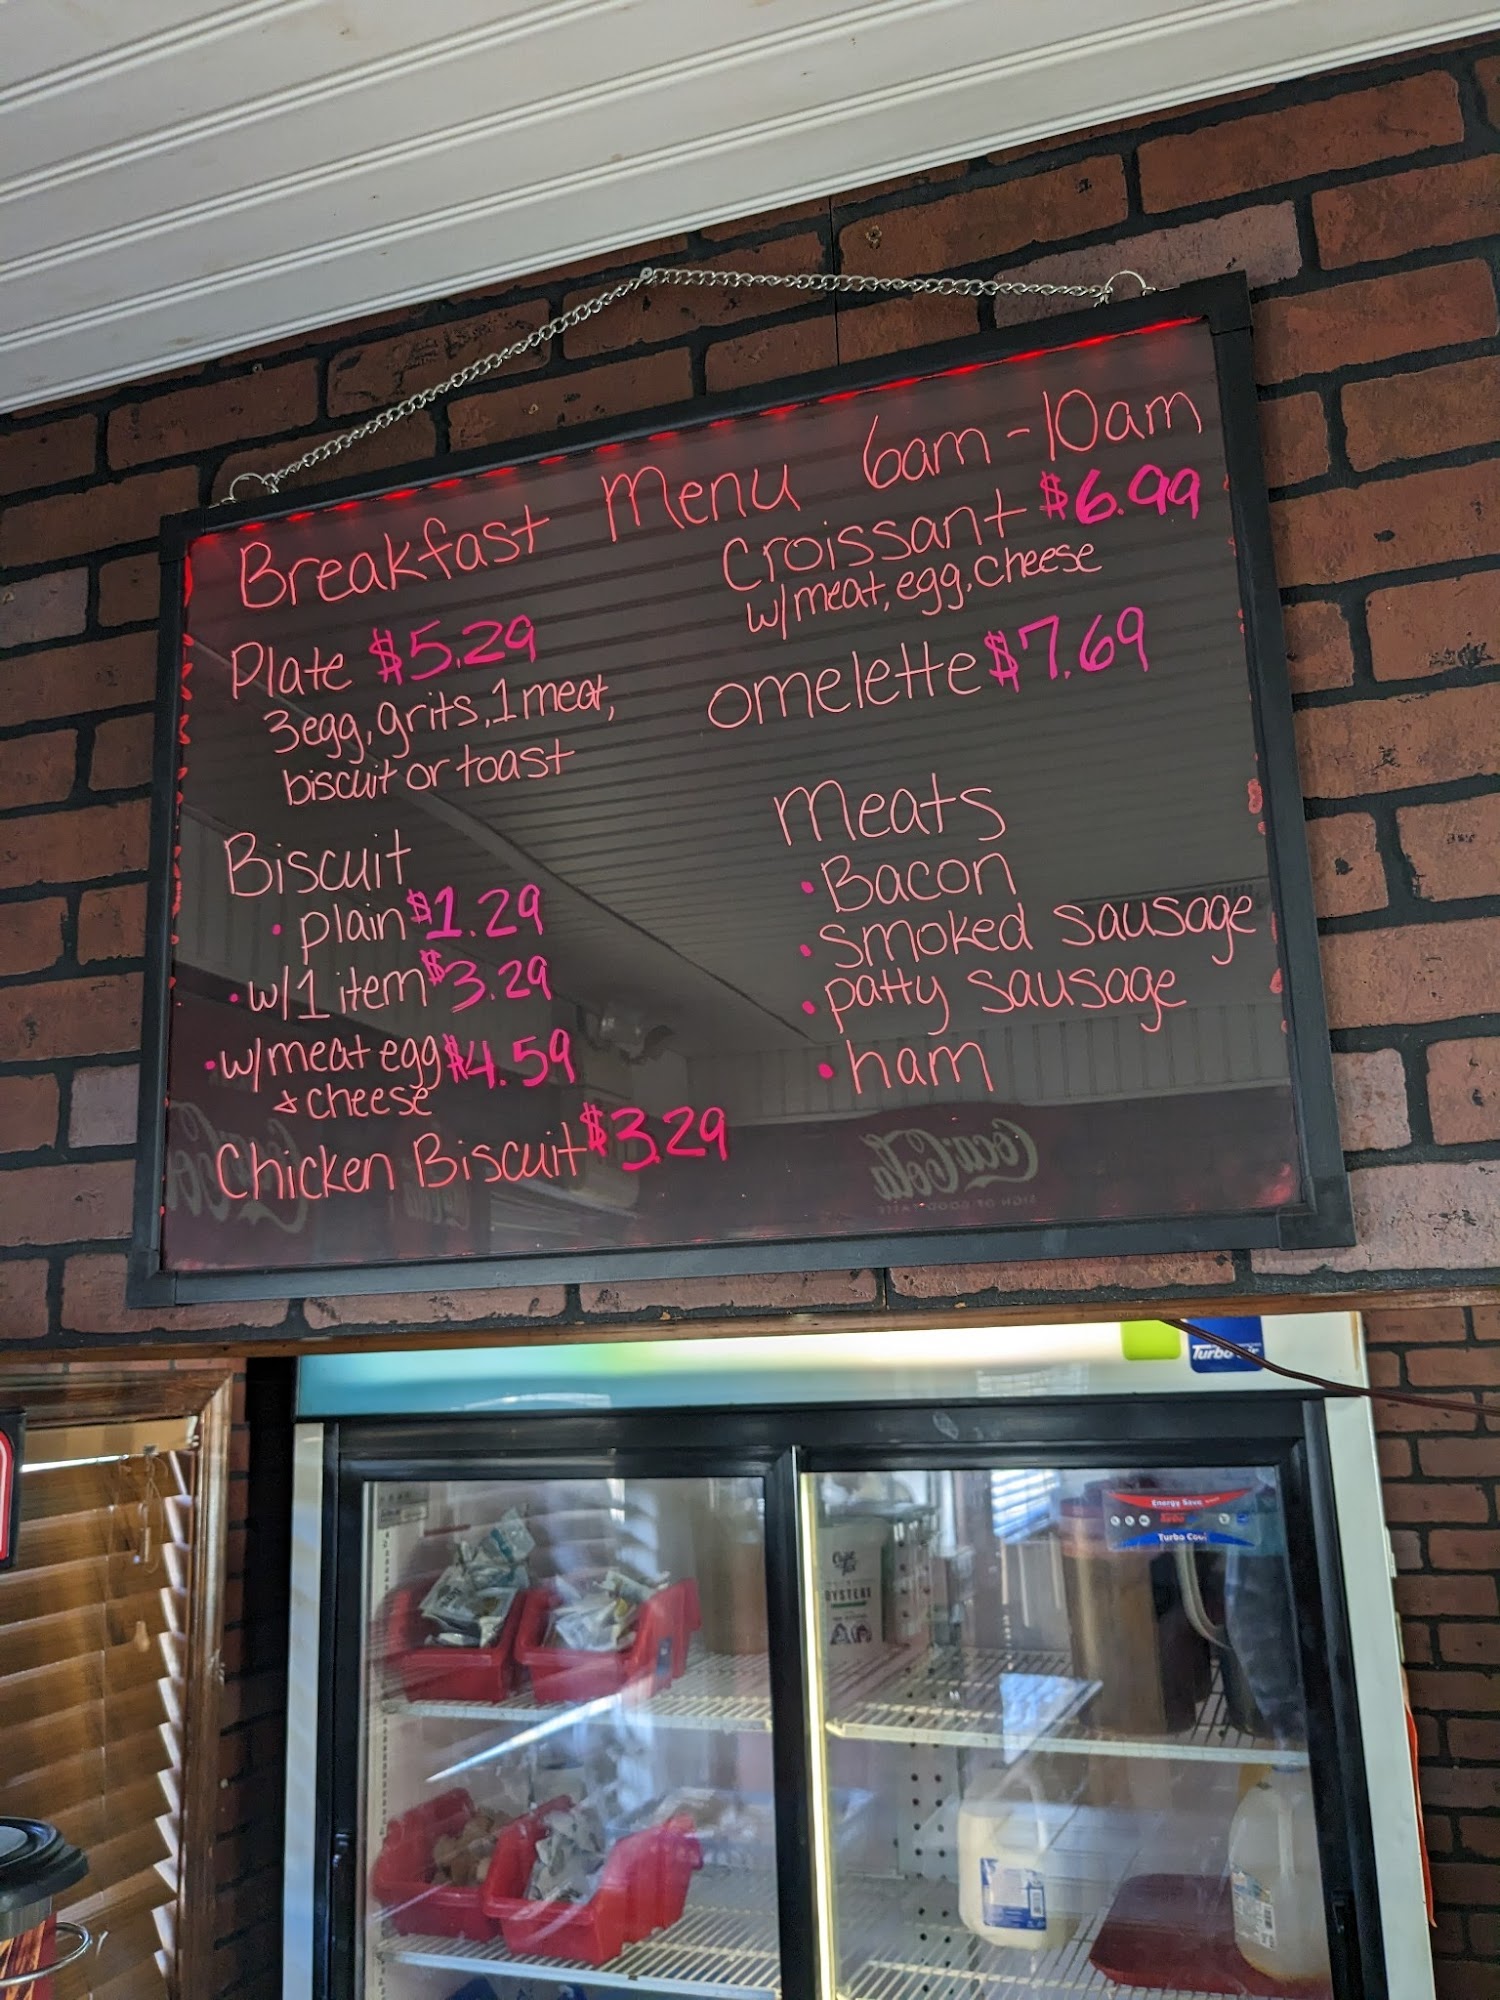 Breakfast Menu 6am-10am
Plate $5.29
3egg, grits, 1 meat,
biscuit or toast
Biscuit
• plain $1.29
• w/1 item $3.29
• w/meat egg $4.59
& cheese
Chicken Biscuit $3.29
Croissant $6.99
w/meat, egg, cheese
omelette $7.69
Meats
• Bacon
• smoked sausage
• patty sausage
• ham
Coca-Cola
SIGN OF GOOD TASTE
Turbo air
Energy Save
Turbo Cool
OYSTERS